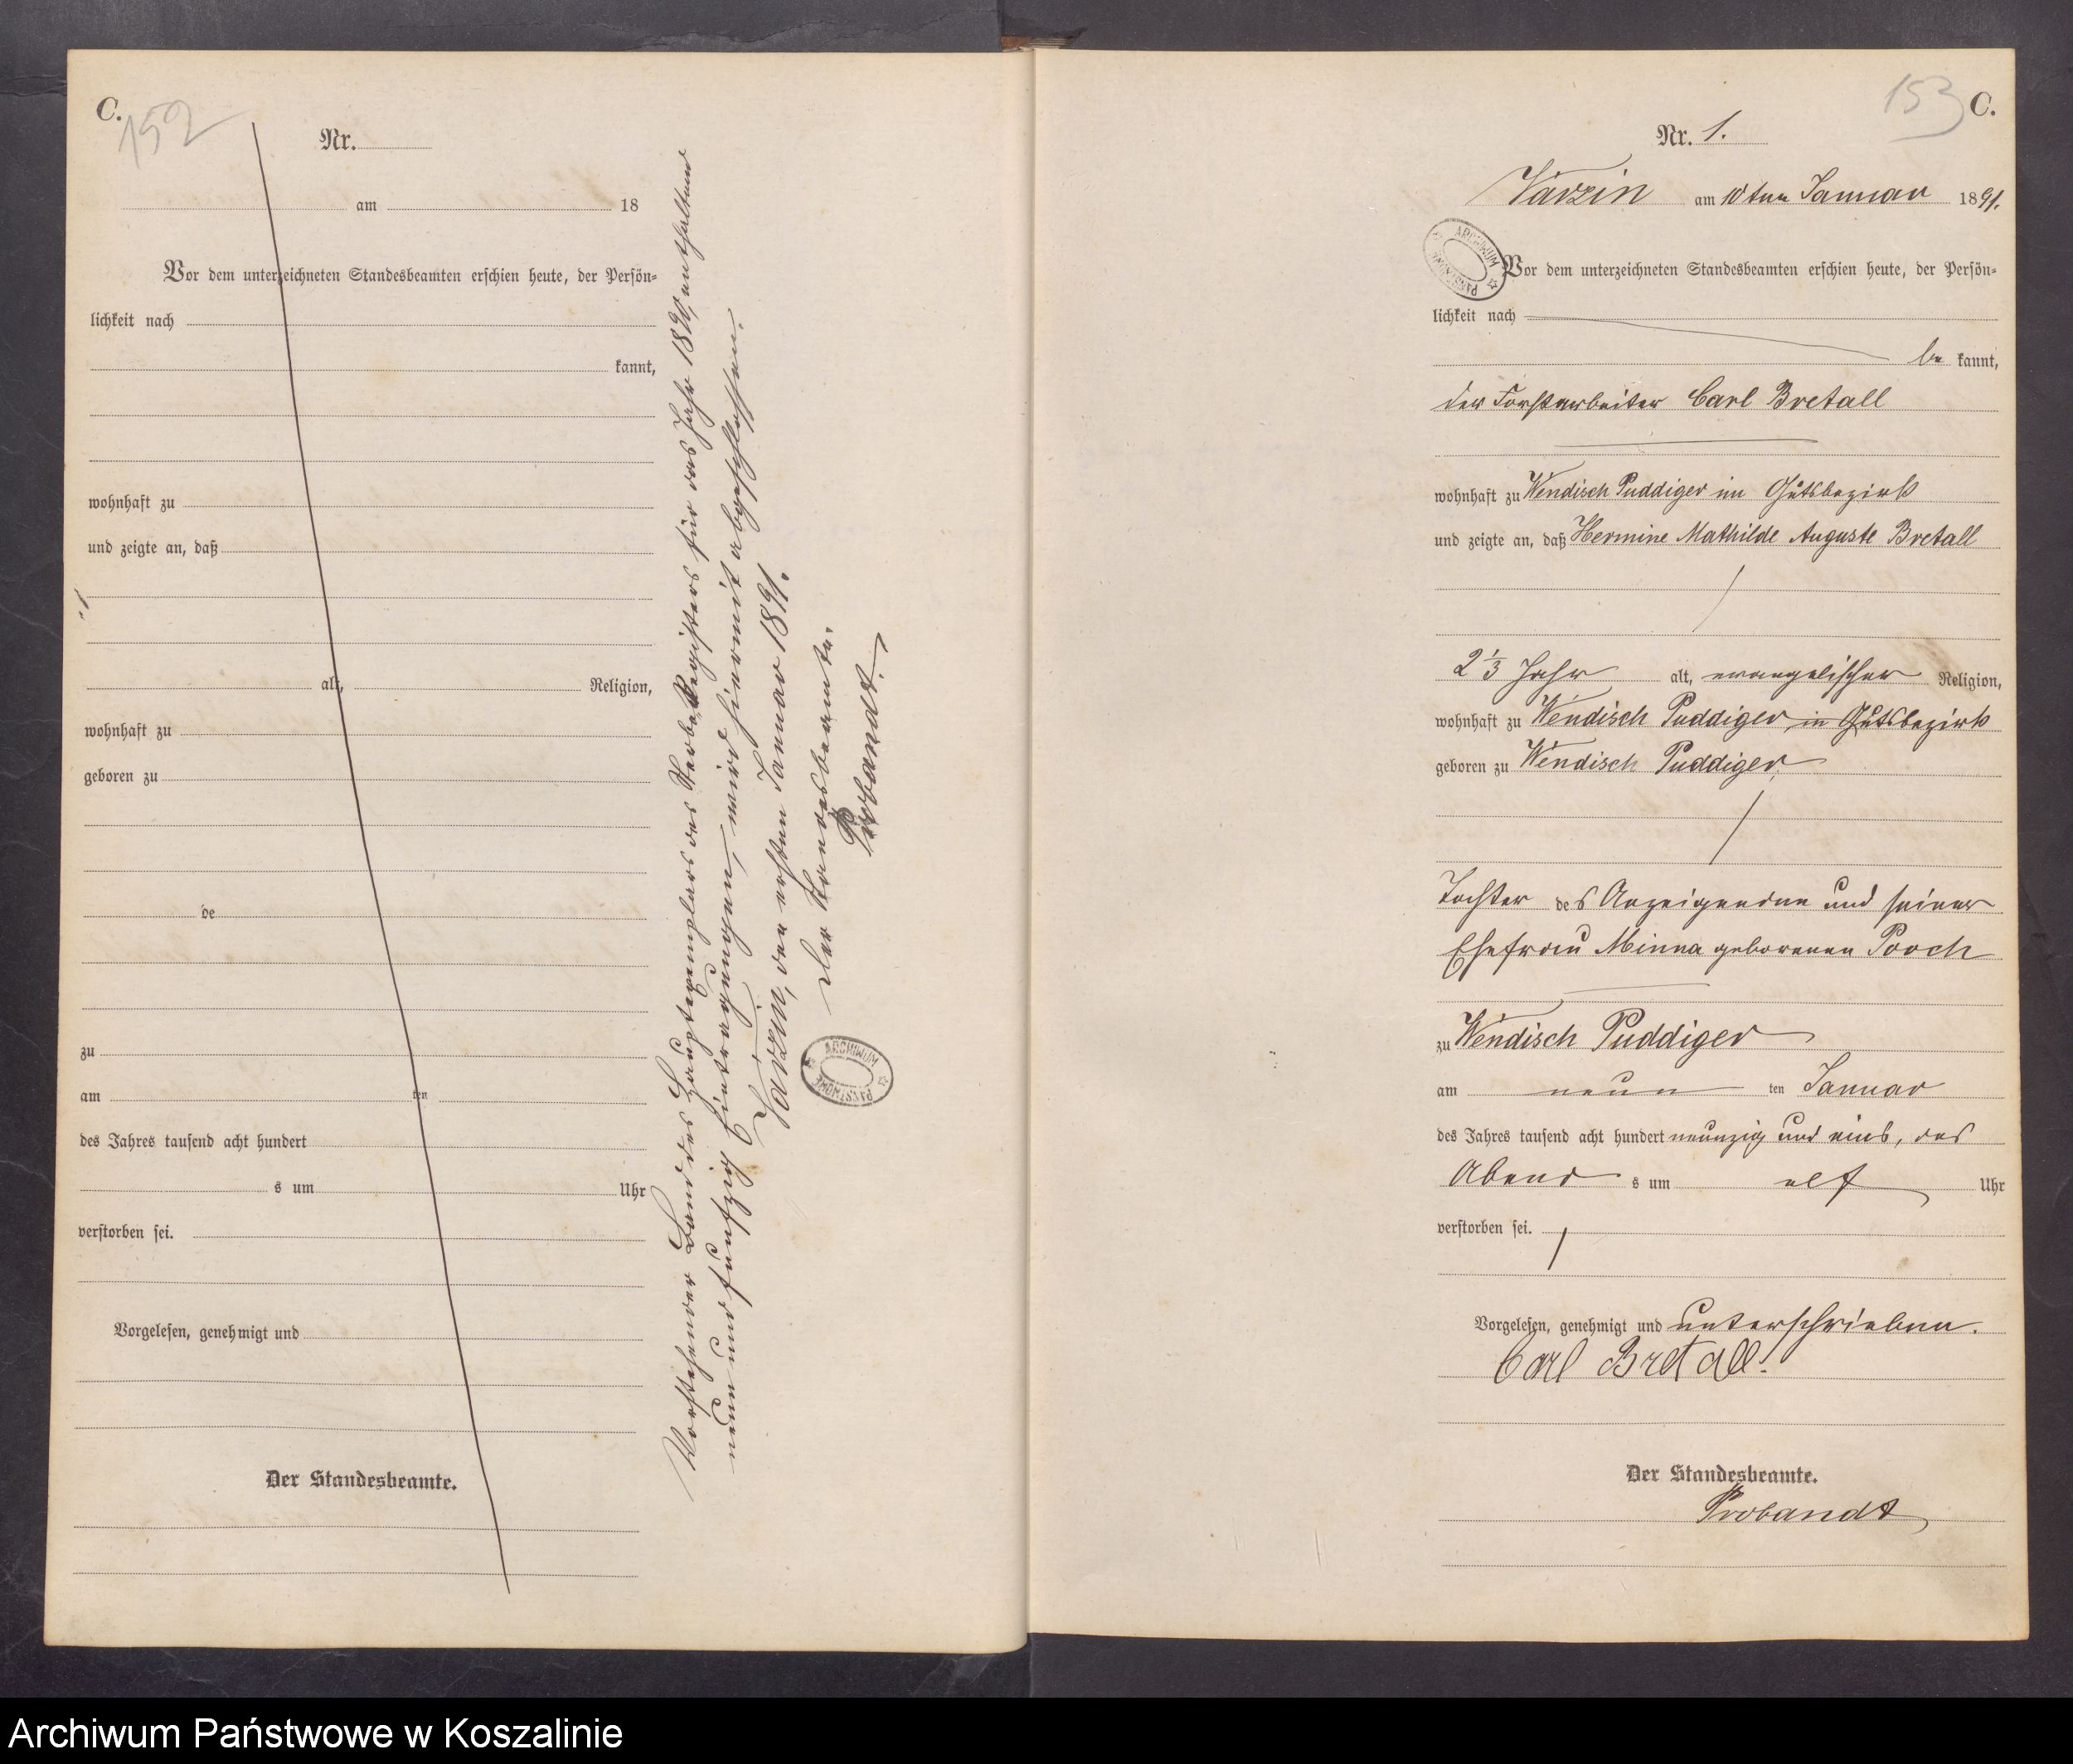 C.
152
Nr.
am 18
Vor dem unterzeichneten Standesbeamten erschien heute, der Persön=
lichkeit nach
kannt,
wohnhaft zu
und zeigte an, daß
alt, Religion,
wohnhaft zu
geboren zu
de
zu
am ten
des Jahres tausend acht hundert
s um Uhr
verstorben sei.
Vorgelesen, genehmigt und
Der Standesbeamte.
Vorstehender Band des Hauptexemplars des Sterbe Registers für das Jahr 1890, enthaltend
neun und fünfzig Eintragungen, wird hiermit abgeschlossen.
Varzin, den ersten Januar 1891.
Der Standesbeamte.
Probandt.
ARCHIWUM PAŃSTWOWE
153
C.
Nr. 1.
Varzin am 10ten Januar 1891.
ARCHIWUM PAŃSTWOWE
Vor dem unterzeichneten Standesbeamten erschien heute, der Persön=
lichkeit nach
be kannt,
der Forstarbeiter Carl Bretall
wohnhaft zu Wendisch Puddiger im Gutsbezirk
und zeigte an, daß Hermine Mathilde Auguste Bretall
2 1/3 Jahr alt, evangelischer Religion,
wohnhaft zu Wendisch Puddiger, im Gutsbezirk
geboren zu Wendisch Puddiger,
Tochter des Anzeigenden und seiner
Ehefrau Minna geborenen Pooch
zu Wendisch Puddiger
am neun ten Januar
des Jahres tausend acht hundert neunzig und eins, des
Abend s um elf Uhr
verstorben sei.
Vorgelesen, genehmigt und unterschrieben.
Carl Bretall.
Der Standesbeamte.
Probandt
Archiwum Państwowe w Koszalinie